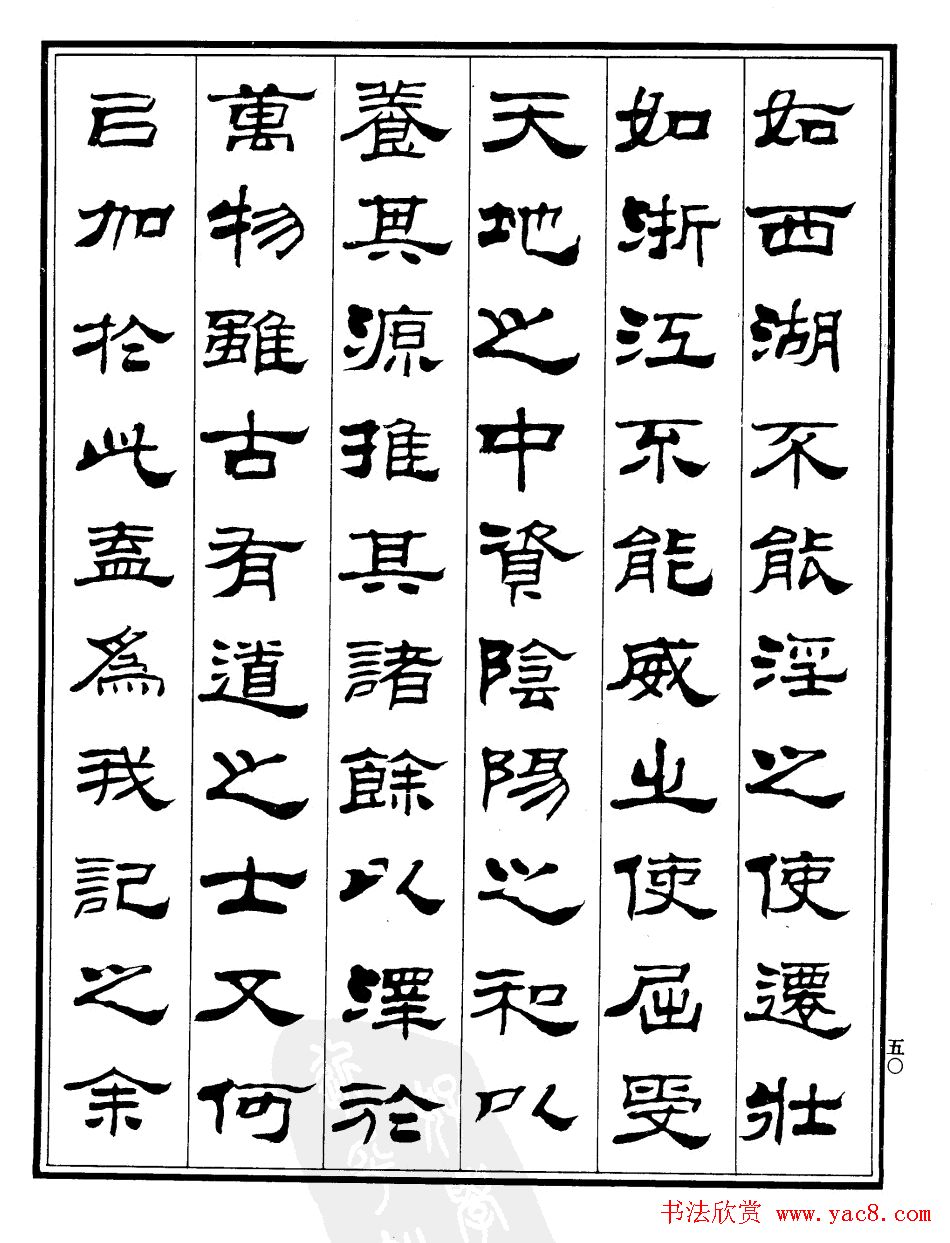 如西湖不能淫之使遷壯
如浙江不能威之使屈受
天地之中資陰陽之和以
養其源推其諸餘以澤於
萬物雖古有道之士又何
㠯加於此盍爲我記之余
五〇
书法欣赏 www.yac8.com